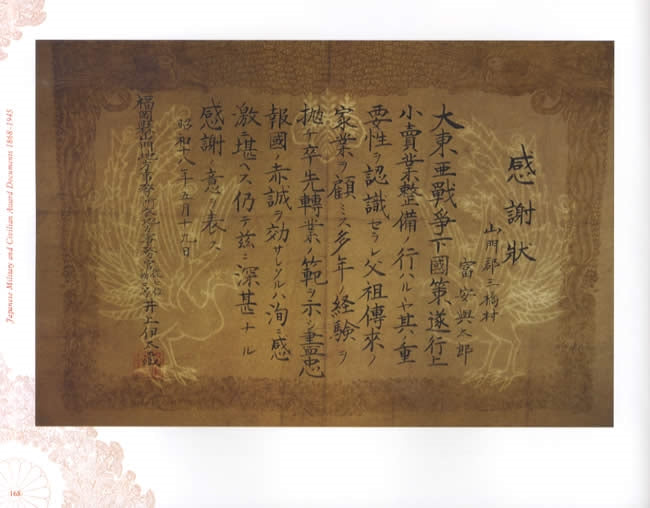 感謝狀
山門郡三橋村
富安與太郎
大東亜戰爭下國策遂行上
小賣業整備ノ行ハルヤ其ノ重
要性ヲ認識セラレ父祖傳來ノ
家業ヲ顧ミス多年ノ経験ヲ
抛チ卒先轉業ノ範ヲ示シ盡忠
報國ノ赤誠ヲ効サレタルハ洵ニ感
激ニ堪ヘス仍テ茲ニ深甚ナル
感謝ノ意ヲ表ス
昭和十八年五月十九日
福岡縣山門地方事務所長地方事務官 井上伊太
Japanese Military and Civilian Award Documents 1868-1945
168